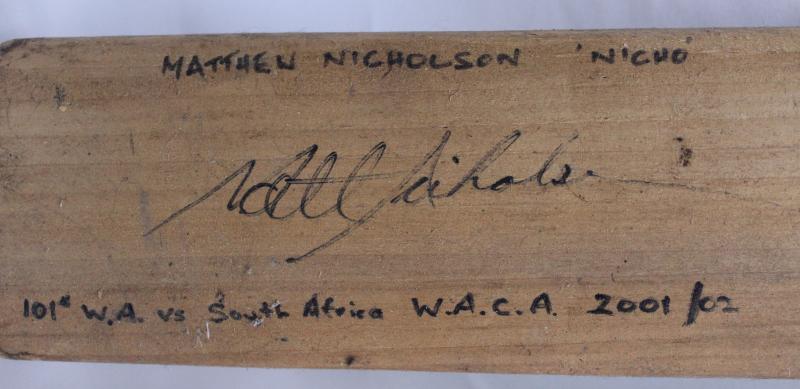 MATTHEW NICHOLSON 'NICHO'
Matt Nicholson
101* W.A. vs South Africa W.A.C.A. 2001/02